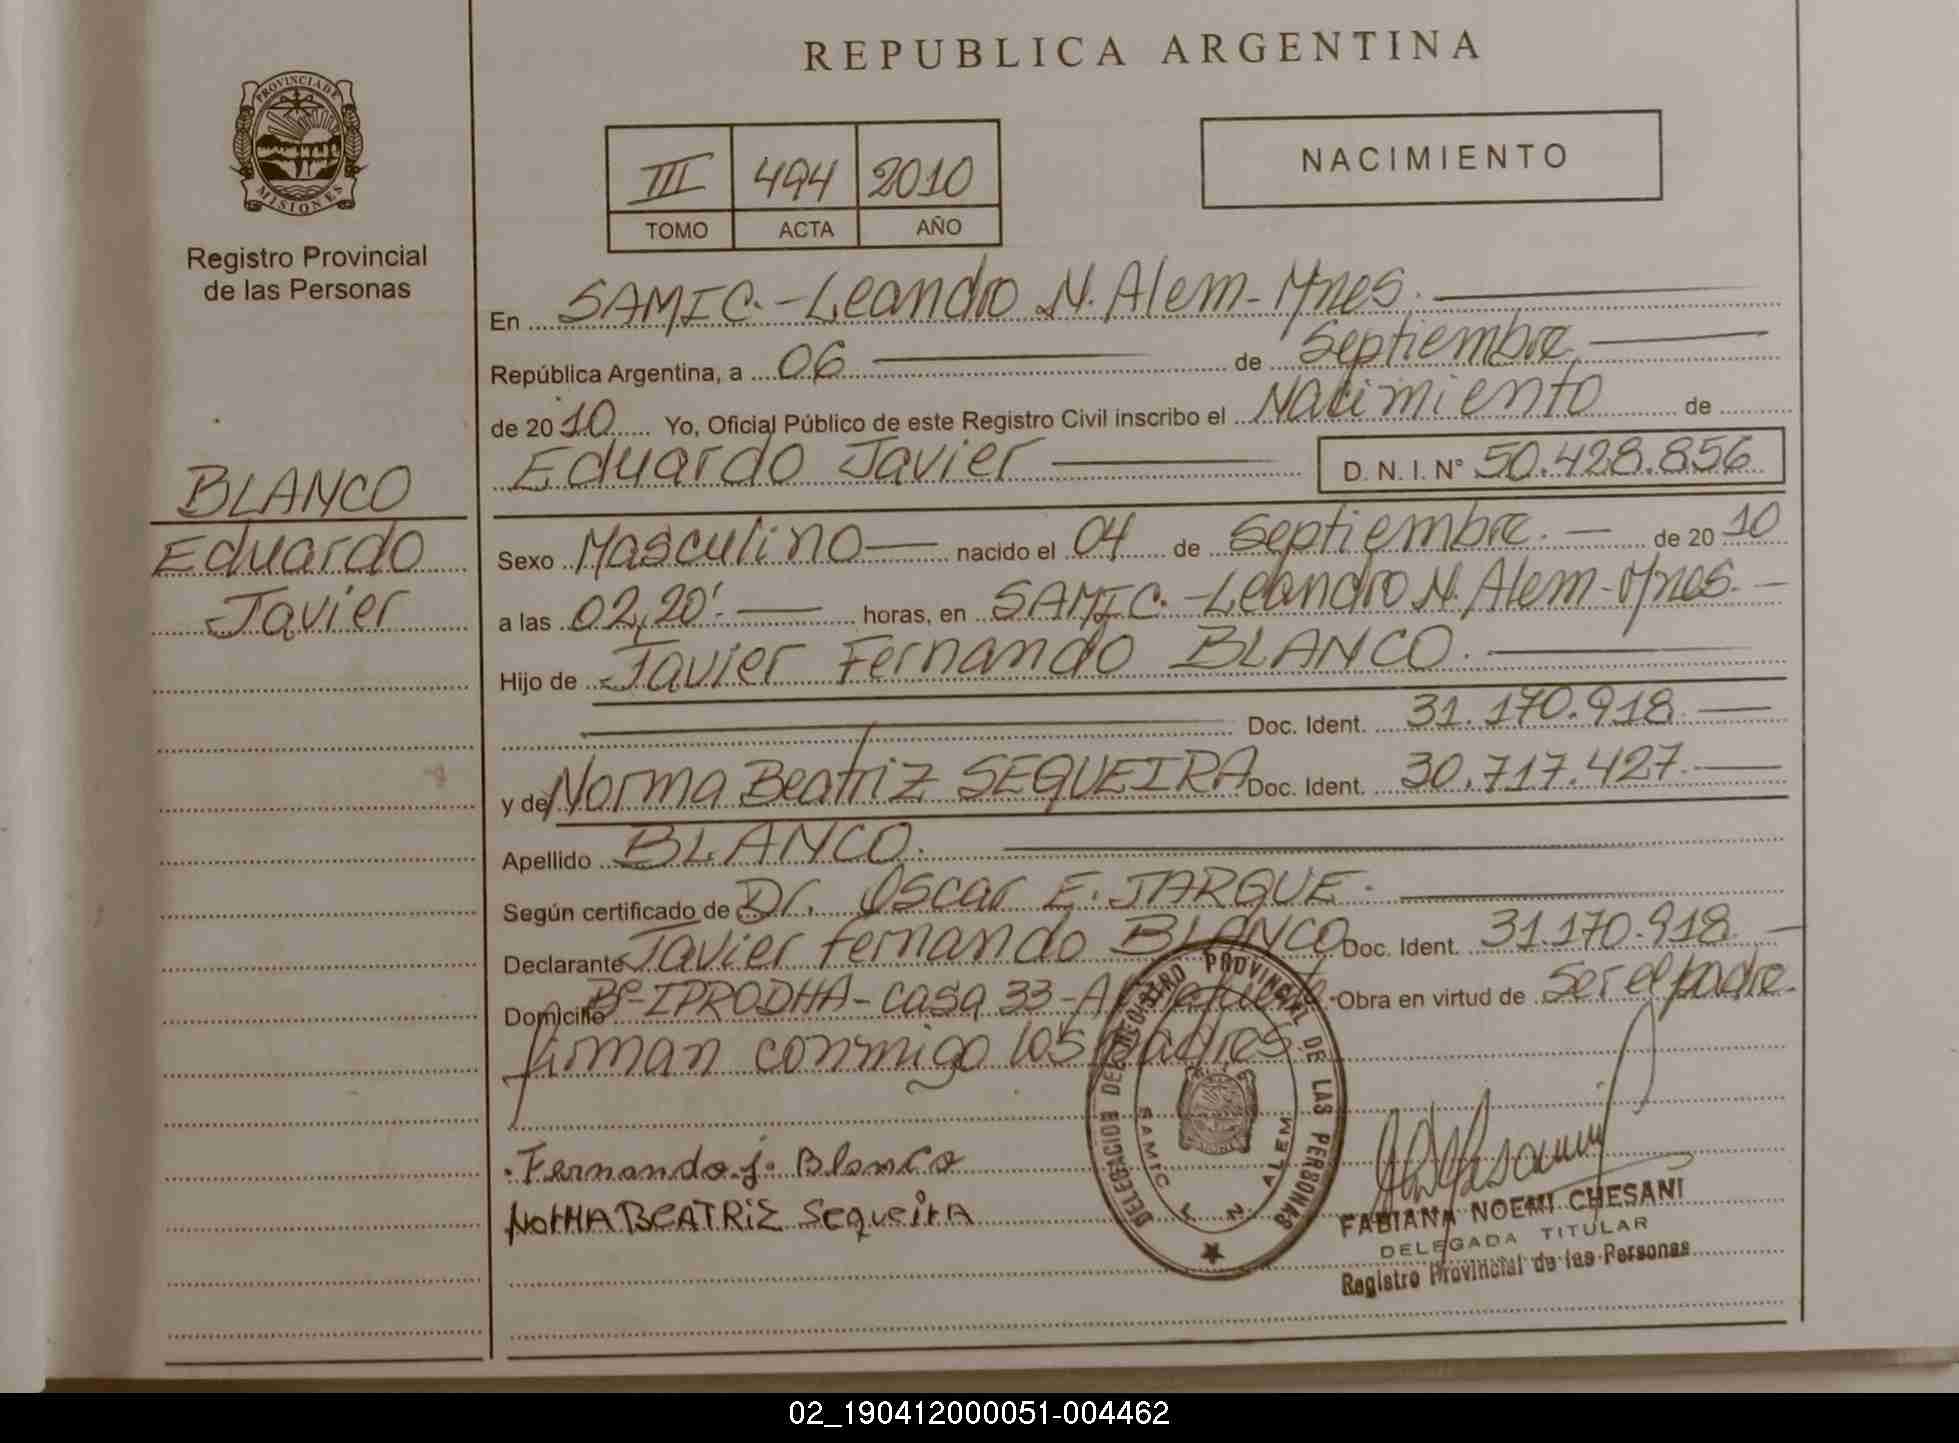 REPUBLICA ARGENTINA
PROVINCIA DE
MISIONES
Registro Provincial
de las Personas
III 494 2010
TOMO ACTA AÑO
NACIMIENTO
En SAMIC.-Leandro N. Alem-Mnes.
República Argentina, a 06 de Septiembre
de 2010 Yo, Oficial Público de este Registro Civil inscribo el Nacimiento de
Eduardo Javier D. N. I. N° 50.428.856
BLANCO
Eduardo
Javier
Sexo Masculino nacido el 04 de Septiembre. de 2010
a las 02,20'. horas, en SAMIC.-Leandro N. Alem-Mnes.
Hijo de Javier Fernando BLANCO.
Doc. Ident. 31.170.918
y de Norma Beatriz SEQUEIRA Doc. Ident. 30.717.427.
Apellido BLANCO.
Según certificado de Dr. Oscar E. JARQUE.
Declarante Javier Fernando BLANCO Doc. Ident. 31.170.918.
Domicilio Bº-IPRODHA-casa 33- Obra en virtud de ser el padre.
firman conmigo los padres
Fernando.j. Blanco
NORMA BEATRIZ Sequeira
DELEGACION DEL REGISTRO PROVINCIAL DE LAS PERSONAS
SAMIC L. N. ALEM
FABIANA NOEMI CHESANI
DELEGADA TITULAR
Registro Provincial de las Personas
02_190412000051-004462